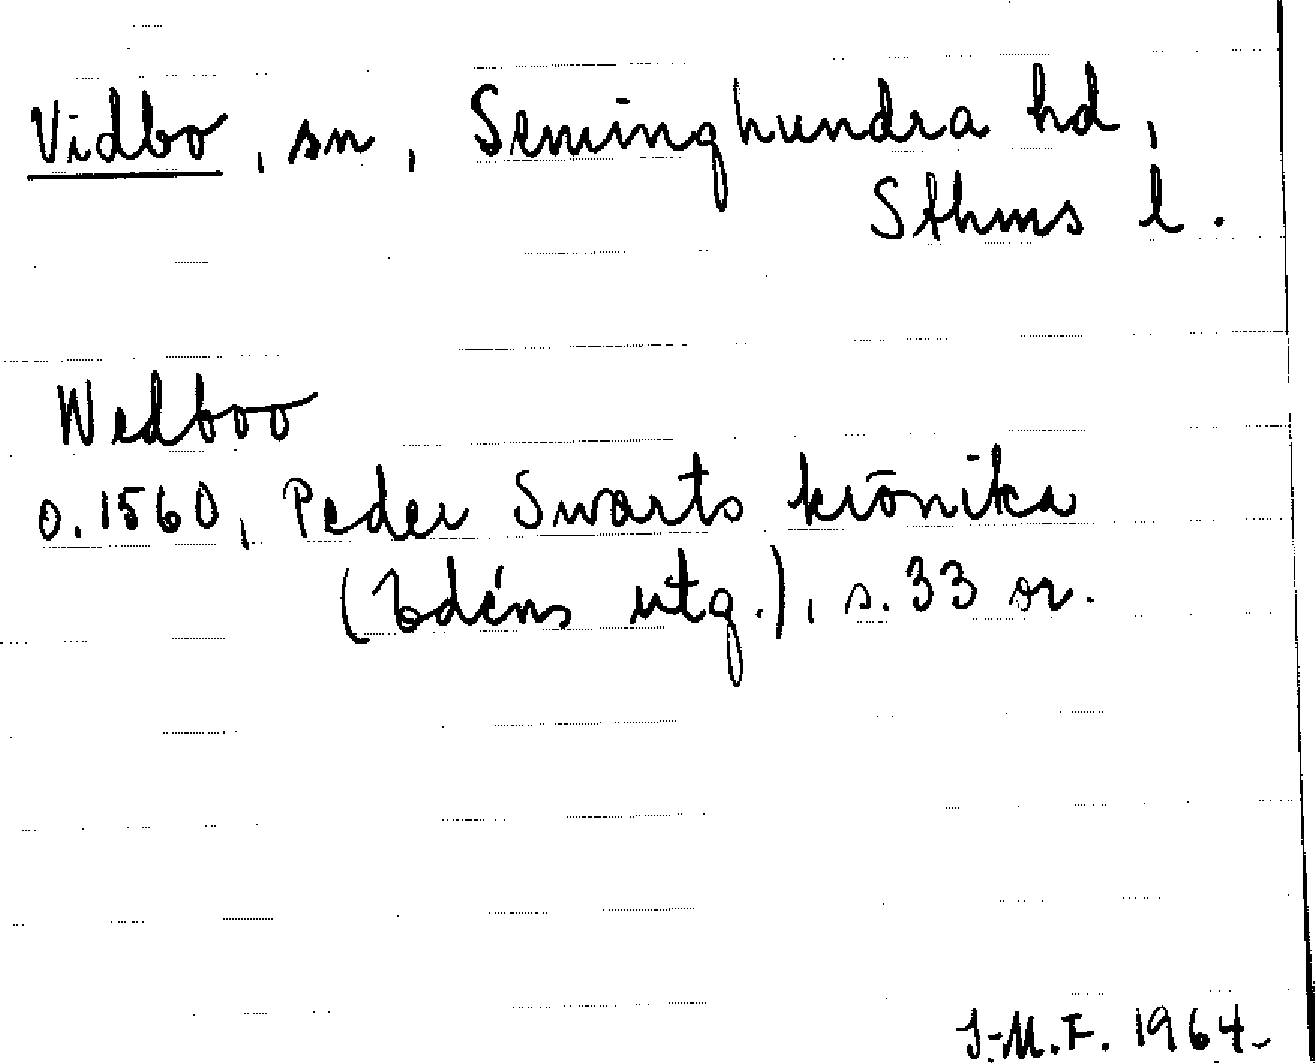 Vidbo, sn, Seminghundra hd,
Sthms l.
Wedboo
o. 1560, Peder Swarts krönika
(Edéns utg.), s. 33 ör.
I-M.F. 1964